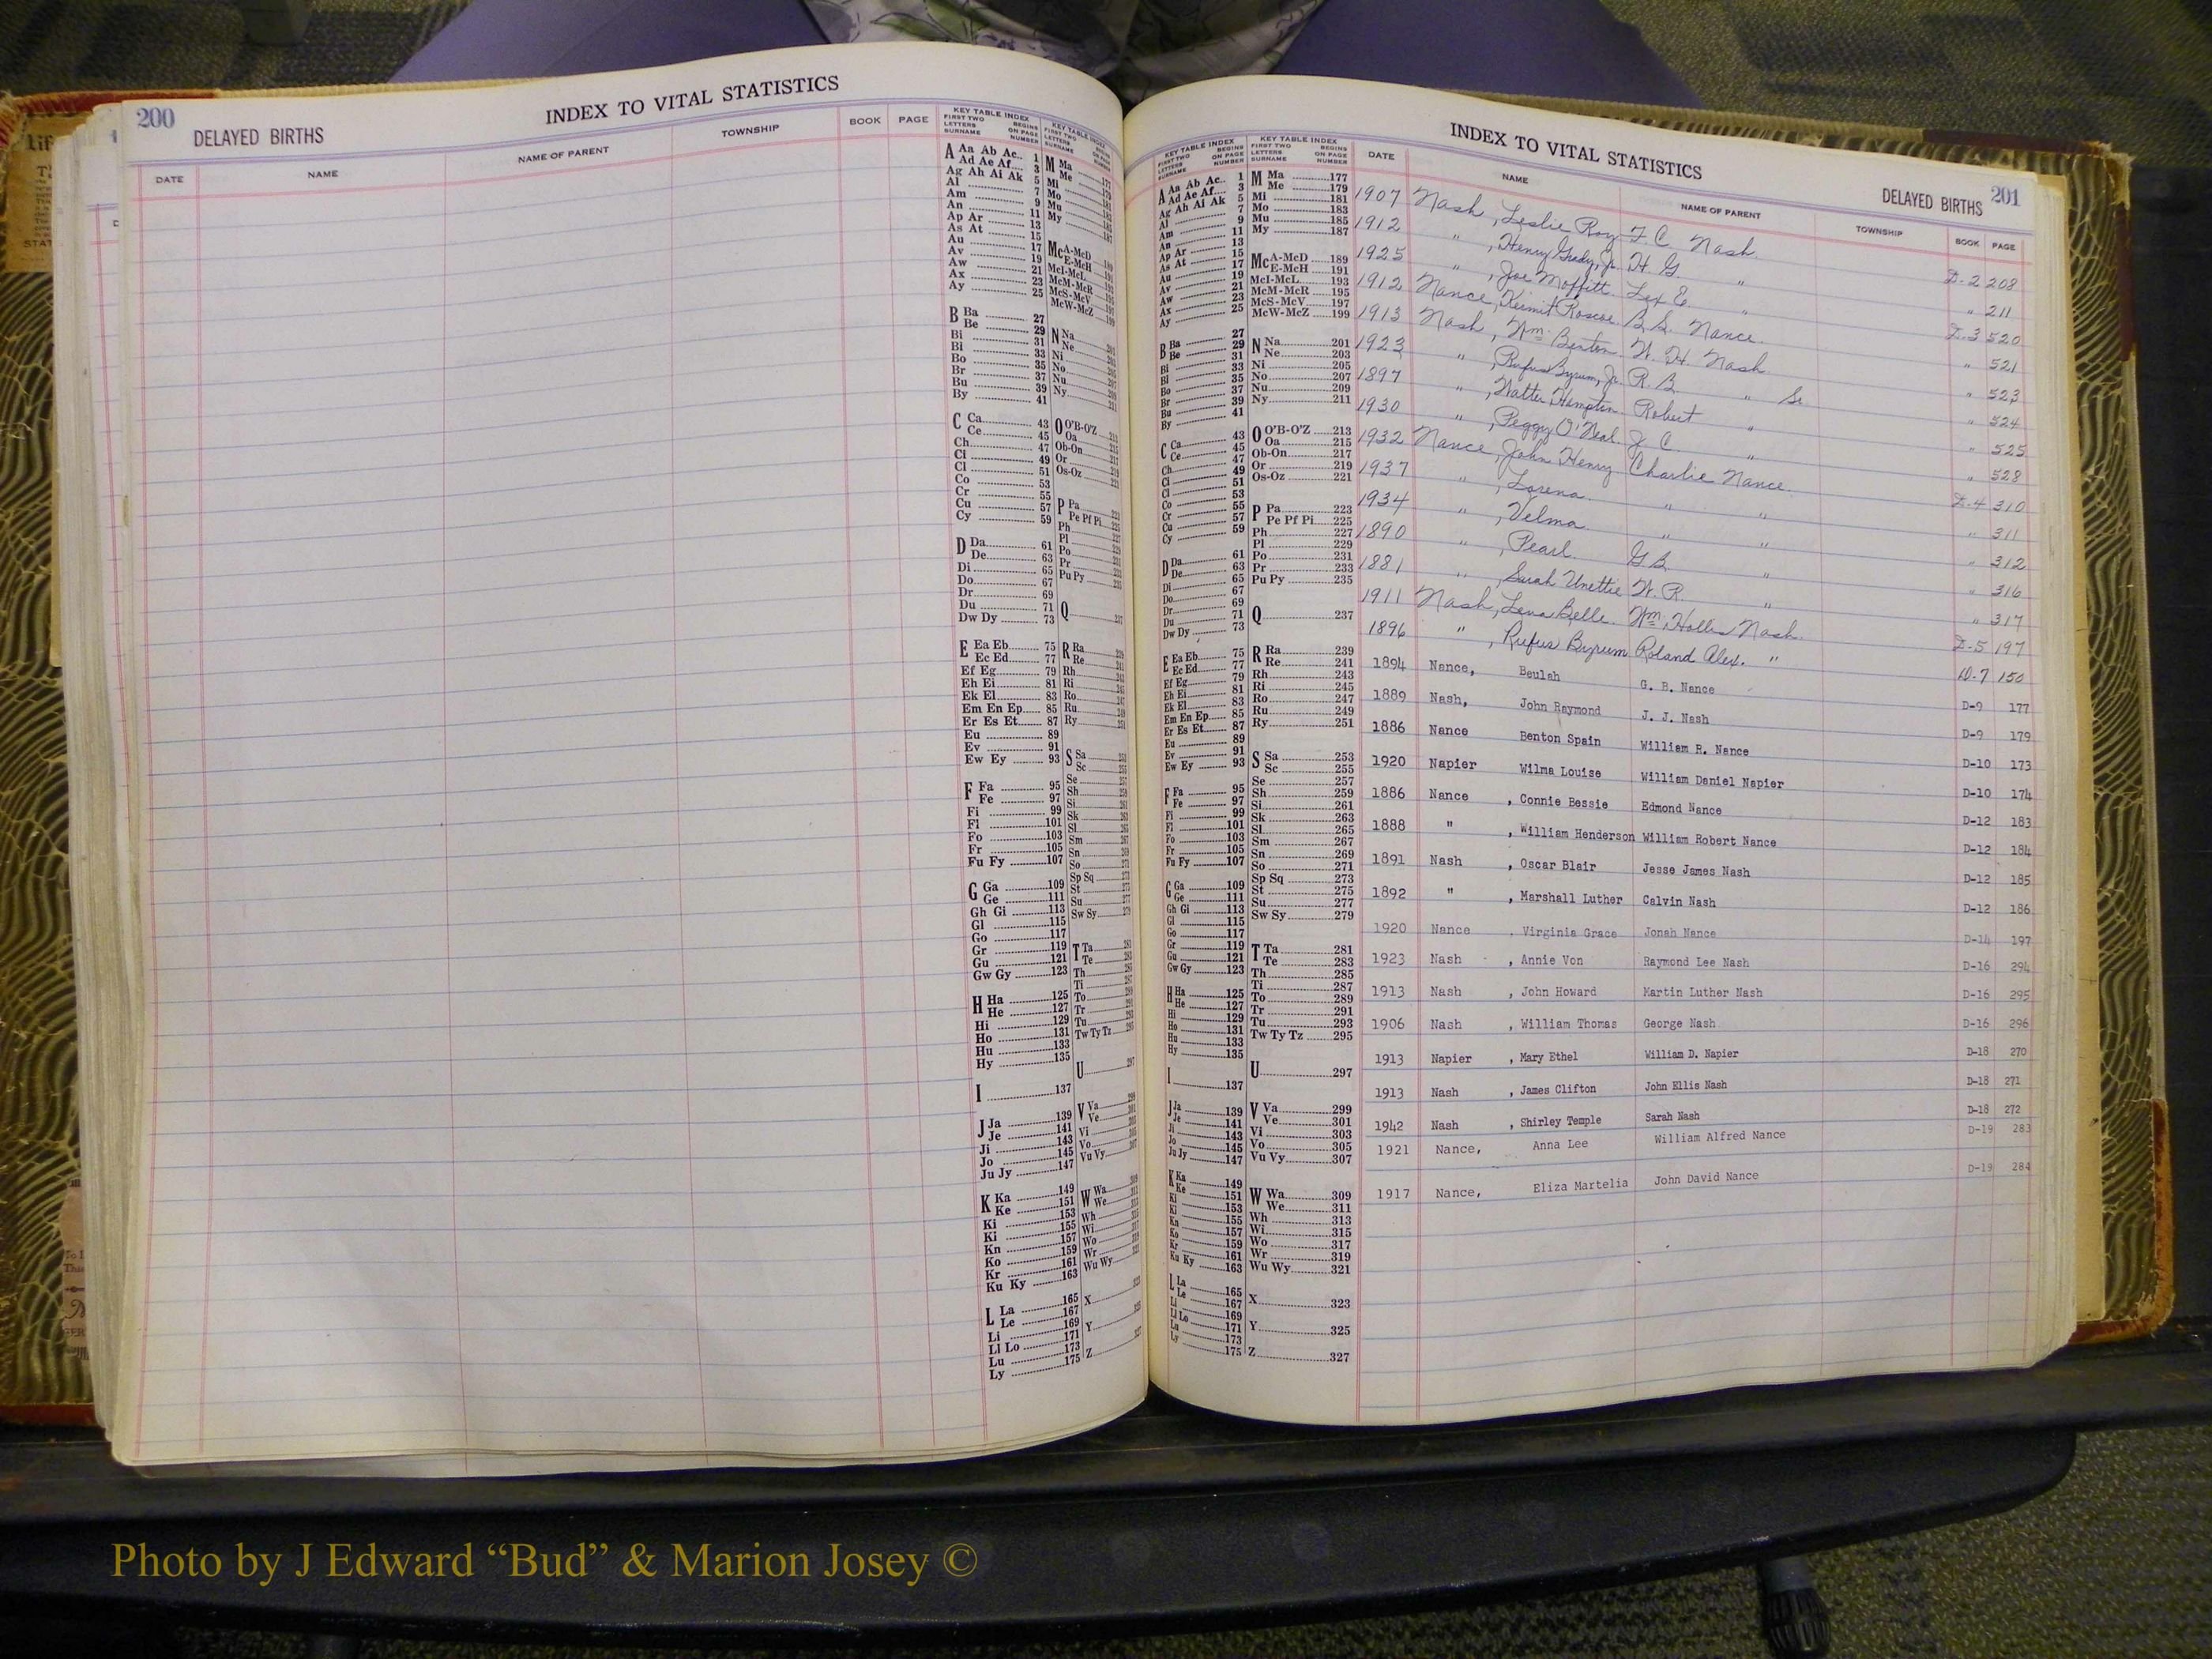 200
INDEX TO VITAL STATISTICS
DELAYED BIRTHS
DATE NAME NAME OF PARENT TOWNSHIP BOOK PAGE
KEY TABLE INDEX
FIRST TWO LETTERS SURNAME BEGINS ON PAGE NUMBER
A Aa Ab Ac 1
Ad Ae Af 3
Ag Ah Ai Ak 5
Al 7
Am 9
An 11
Ap Ar 13
As At 15
Au 17
Av 19
Aw 21
Ax 23
Ay 25
B Ba 27
Be 29
Bi 31
Bl 33
Bo 35
Br 37
Bu 39
By 41
C Ca 43
Ce 45
Ch 47
Ci 49
Cl 51
Co 53
Cr 55
Cu 57
Cy 59
D Da 61
De 63
Di 65
Do 67
Dr 69
Du 71
Dw Dy 73
E Ea Eb 75
Ec Ed 77
Ef Eg 79
Eh Ei 81
Ek El 83
Em En Ep 85
Er Es Et 87
Eu 89
Ev 91
Ew Ey 93
F Fa 95
Fe 97
Fi 99
Fl 101
Fo 103
Fr 105
Fu Fy 107
G Ga 109
Ge 111
Gh Gi 113
Gl 115
Go 117
Gr 119
Gu 121
Gw Gy 123
H Ha 125
He 127
Hi 129
Ho 131
Hu 133
Hy 135
I 137
J Ja 139
Je 141
Ji 143
Jo 145
Ju Jy 147
K Ka 149
Ke 151
Ki 153
Ki 155
Kn 157
Ko 159
Kr 161
Ku Ky 163
L La 165
Le 167
Li 169
Ll Lo 171
Lu 173
Ly 175
INDEX TO VITAL STATISTICS
DELAYED BIRTHS 201
KEY TABLE INDEX
FIRST TWO LETTERS SURNAME BEGINS ON PAGE NUMBER
M Ma 177
Me 179
Mi 181
Mo 183
Mu 185
My 187
McA-McD 189
E-McH 191
McI-McL 193
McM-McR 195
McS-McV 197
McW-McZ 199
N Na 201
Ne 203
Ni 205
No 207
Nu 209
Ny 211
O O'B-O'Z 213
Oa 215
Ob-On 217
Or 219
Os-Oz 221
P Pa 223
Pe Pf Pi 225
Ph 227
Pl 229
Po 231
Pr 233
Pu Py 235
Q 237
R Ra 239
Re 241
Rh 243
Ri 245
Ro 247
Ru 249
Ry 251
S Sa 253
Sc 255
Se 257
Sh 259
Si 261
Sk 263
Sl 265
Sm 267
Sn 269
So 271
Sp Sq 273
St 275
Su 277
Sw Sy 279
T Ta 281
Te 283
Th 285
Ti 287
To 289
Tr 291
Tu 293
Tw Ty Tz 295
U 297
V Va 299
Ve 301
Vi 303
Vo 305
Vu Vy 307
W Wa 309
We 311
Wh 313
Wi 315
Wo 317
Wr 319
Wu Wy 321
X 323
Y 325
Z 327
DATE NAME NAME OF PARENT TOWNSHIP BOOK PAGE
1907 Nash, Leslie Roy T. C. Nash D-2 208
1912 " , Henry Grady, Jr. H. G. " " 211
1925 " , Joe Moffitt Lex E. " D-3 520
1912 Nance, Kermit Roscoe B. S. Nance " 521
1913 Nash, Wm. Benton W. H. Nash " 523
1923 " , Rufus Byrum, Jr. R. B. " Sr. " 524
1897 " , Walter Hampton Robert " " 525
1930 " , Peggy O'Neal J. C. " " 528
1932 Nance, John Henry Charlie Nance D-4 310
1937 " , Lorena " " " 311
1934 " , Velma " " " 312
1890 " , Pearl G. B. " " 316
1881 " , Sarah Unettie W. R. " " 317
1911 Nash, Lena Belle Wm. Hollis Nash D-5 197
1896 " , Rufus Byrum Roland Alex. " D-7 150
1894 Nance, Beulah G. B. Nance D-9 177
1889 Nash, John Raymond J. J. Nash D-9 179
1886 Nance Benton Spain William R. Nance D-10 173
1920 Napier Wilma Louise William Daniel Napier D-10 174
1886 Nance , Connie Bessie Edmond Nance D-12 183
1888 " , William Henderson William Robert Nance D-12 184
1891 Nash , Oscar Blair Jesse James Nash D-12 185
1892 " , Marshall Luther Calvin Nash D-12 186
1920 Nance , Virginia Grace Jonah Nance D-14 197
1923 Nash , Annie Von Raymond Lee Nash D-16 294
1913 Nash , John Howard Martin Luther Nash D-16 295
1906 Nash , William Thomas George Nash D-16 296
1913 Napier , Mary Ethel William D. Napier D-18 270
1913 Nash , James Clifton John Ellis Nash D-18 271
1942 Nash , Shirley Temple Sarah Nash D-18 272
1921 Nance, Anna Lee William Alfred Nance D-19 283
1917 Nance, Eliza Martelia John David Nance D-19 284
Photo by J Edward “Bud” & Marion Josey ©